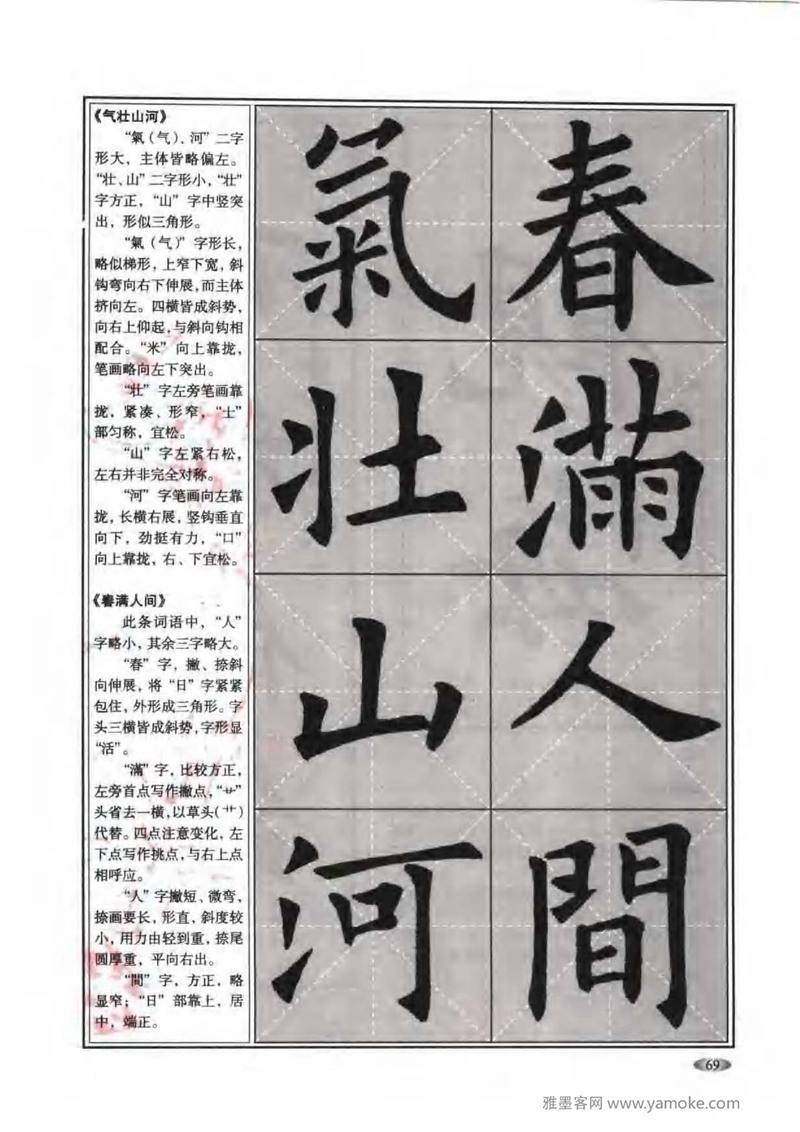 《气壮山河》
“氣(气)、河”二字
形大，主体皆略偏左。
“壮、山”二字形小，“壮”
字方正，“山”字中竖突
出，形似三角形。
“氣(气)”字形长，
略似梯形，上窄下宽，斜
钩弯向右下伸展，而主体
挤向左。四横皆成斜势，
向右上仰起，与斜向钩相
配合。“米”向上靠拢，
笔画略向左下突出。
“壮”字左旁笔画靠
拢，紧凑、形窄，“士”
部匀称，宜松。
“山”字左紧右松，
左右并非完全对称。
“河”字笔画向左靠
拢，长横右展，竖钩垂直
向下，劲挺有力，“口”
向上靠拢，右、下宜松。
《春满人间》
此条词语中，“人”
字略小，其余三字略大。
“春”字，撇、捺斜
向伸展，将“日”字紧紧
包住，外形成三角形。字
头三横皆成斜势，字形显
“活”。
“滿”字，比较方正，
左旁首点写作撇点，“廿”
头省去一横，以草头(艹)
代替。四点注意变化，左
下点写作挑点，与右上点
相呼应。
“人”字撇短、微弯，
捺画要长，形直，斜度较
小，用力由轻到重，捺尾
圆厚重，平向右出。
“間”字，方正，略
显窄；“日”部靠上，居
中，端正。
春
滿
人
間
氣
壮
山
河
69
雅墨客网 www.yamoke.com